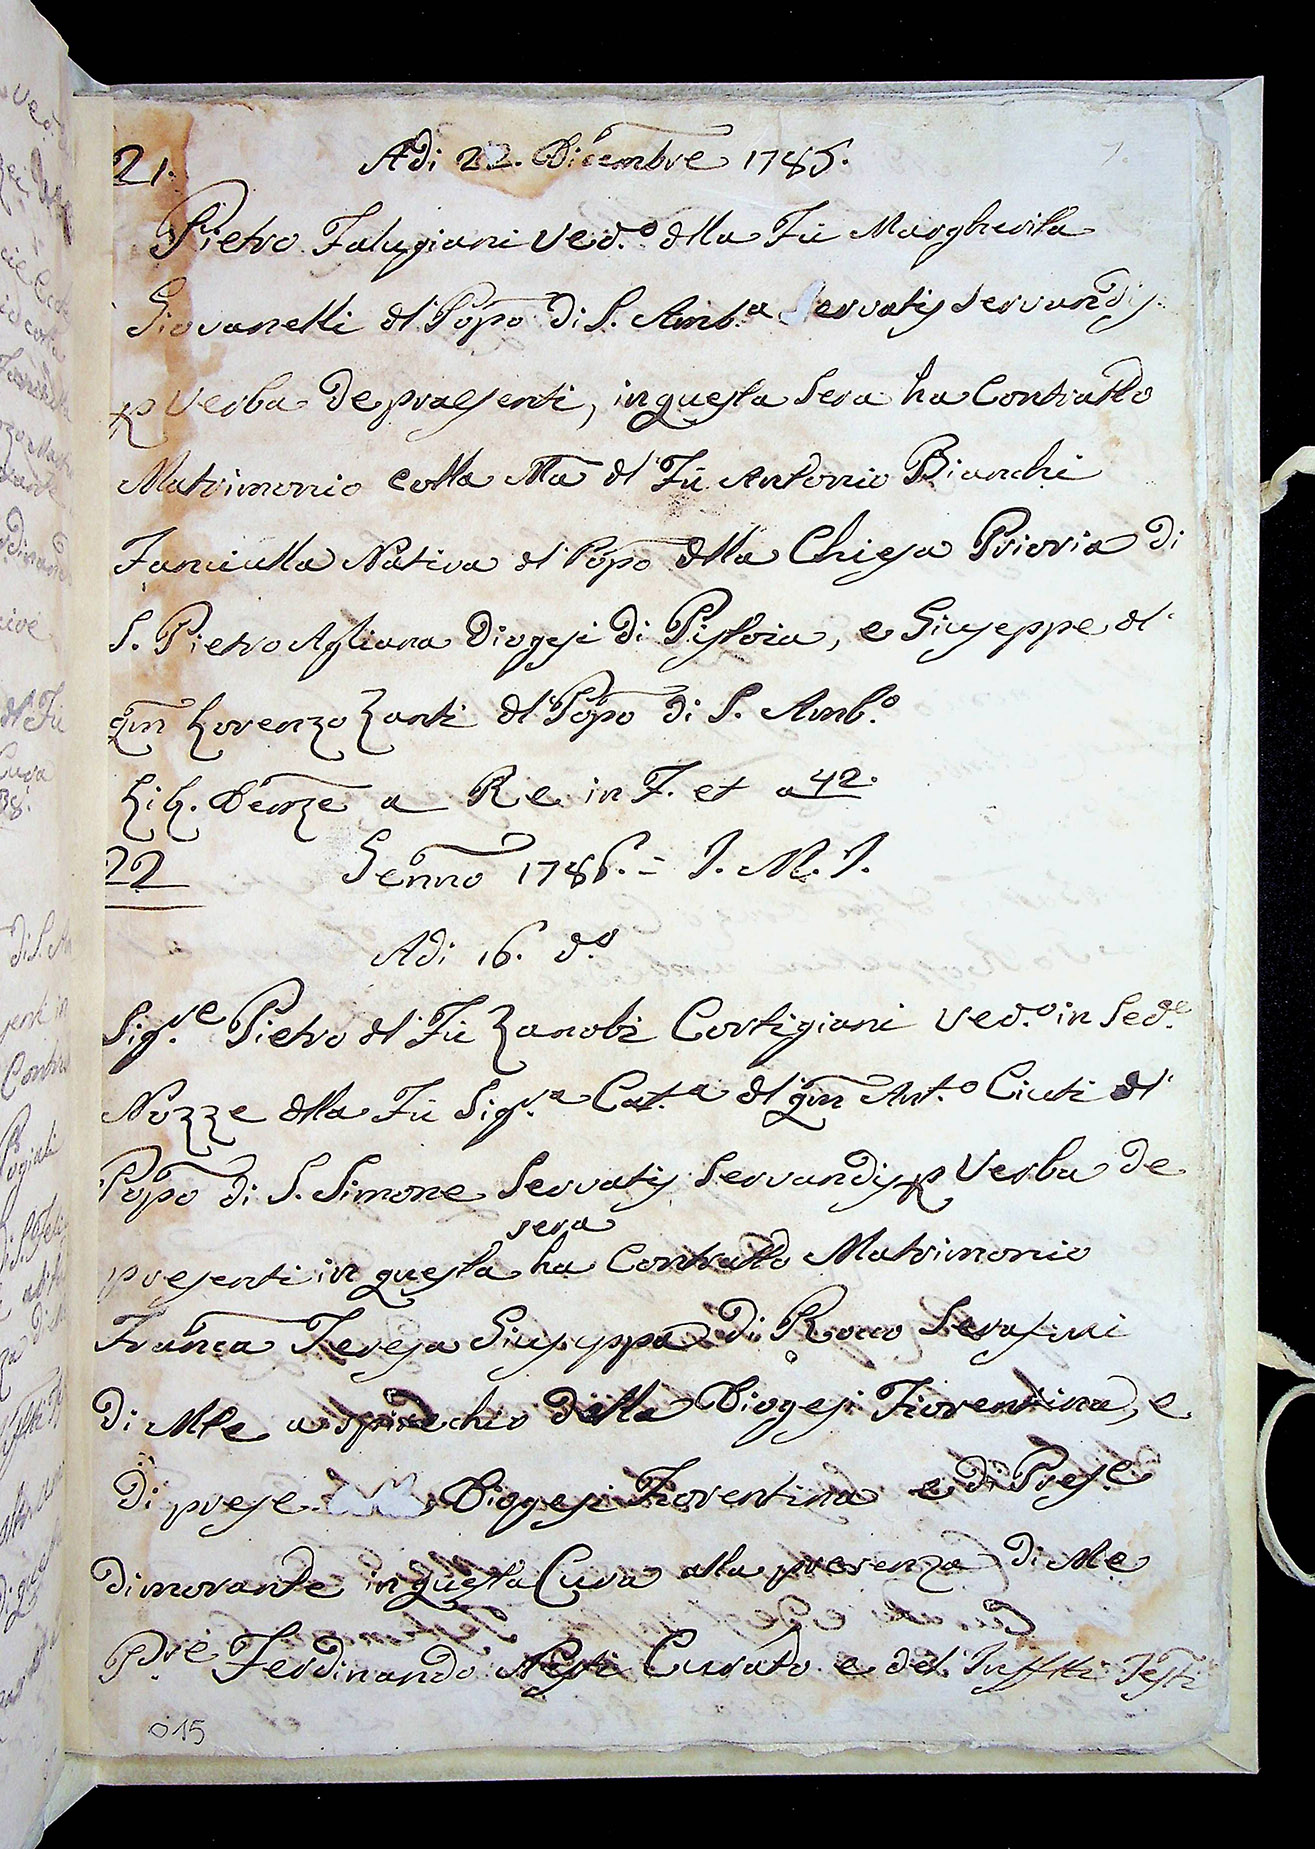 21. Adi 22. Dicembre 1785.
Pietro Falugiani Ved.o dlla Fù Margherita
Giovanelli dl Popo di S. Amb.a Servatis servandis
p Verba de praesenti, in questa Sera ha Contratto
Matrimonio colla Ma dl Fù Antonio Bianchi
Fanciulla Nativa dl Popo dlla Chiesa Prioria di
S. Pietro Agliana Diogesi di Pistoia, e Giuseppe dl
qm Lorenzo Zanti dl Popo di S. Amb.o
Lib. Denze a Re in F. et a 42.
22 Genno 1786. = J. M. J.
Adi 16. d.o
Sig.re Pietro dl Fù Zanobi Cortigiani Ved.o in Sed.e
Nozze dlla Fù Sig.ra Cat.a dl qm Ant.o Ciuti dl
Popo di S. Simone Servatis Servandis p Verba de
sera
presenti in questa ha Contratto Matrimonio
Franca Teresa Giuseppa di Rocco Serafini
di Mte a spirechio della Diogesi Fiorentina, e
di prese Diogesi Fiorentina e di Pres.e
dimorante in questa Cura alla presenza di Me
Pdre Ferdinando Nesti Curato e dei Infftti Testi
015